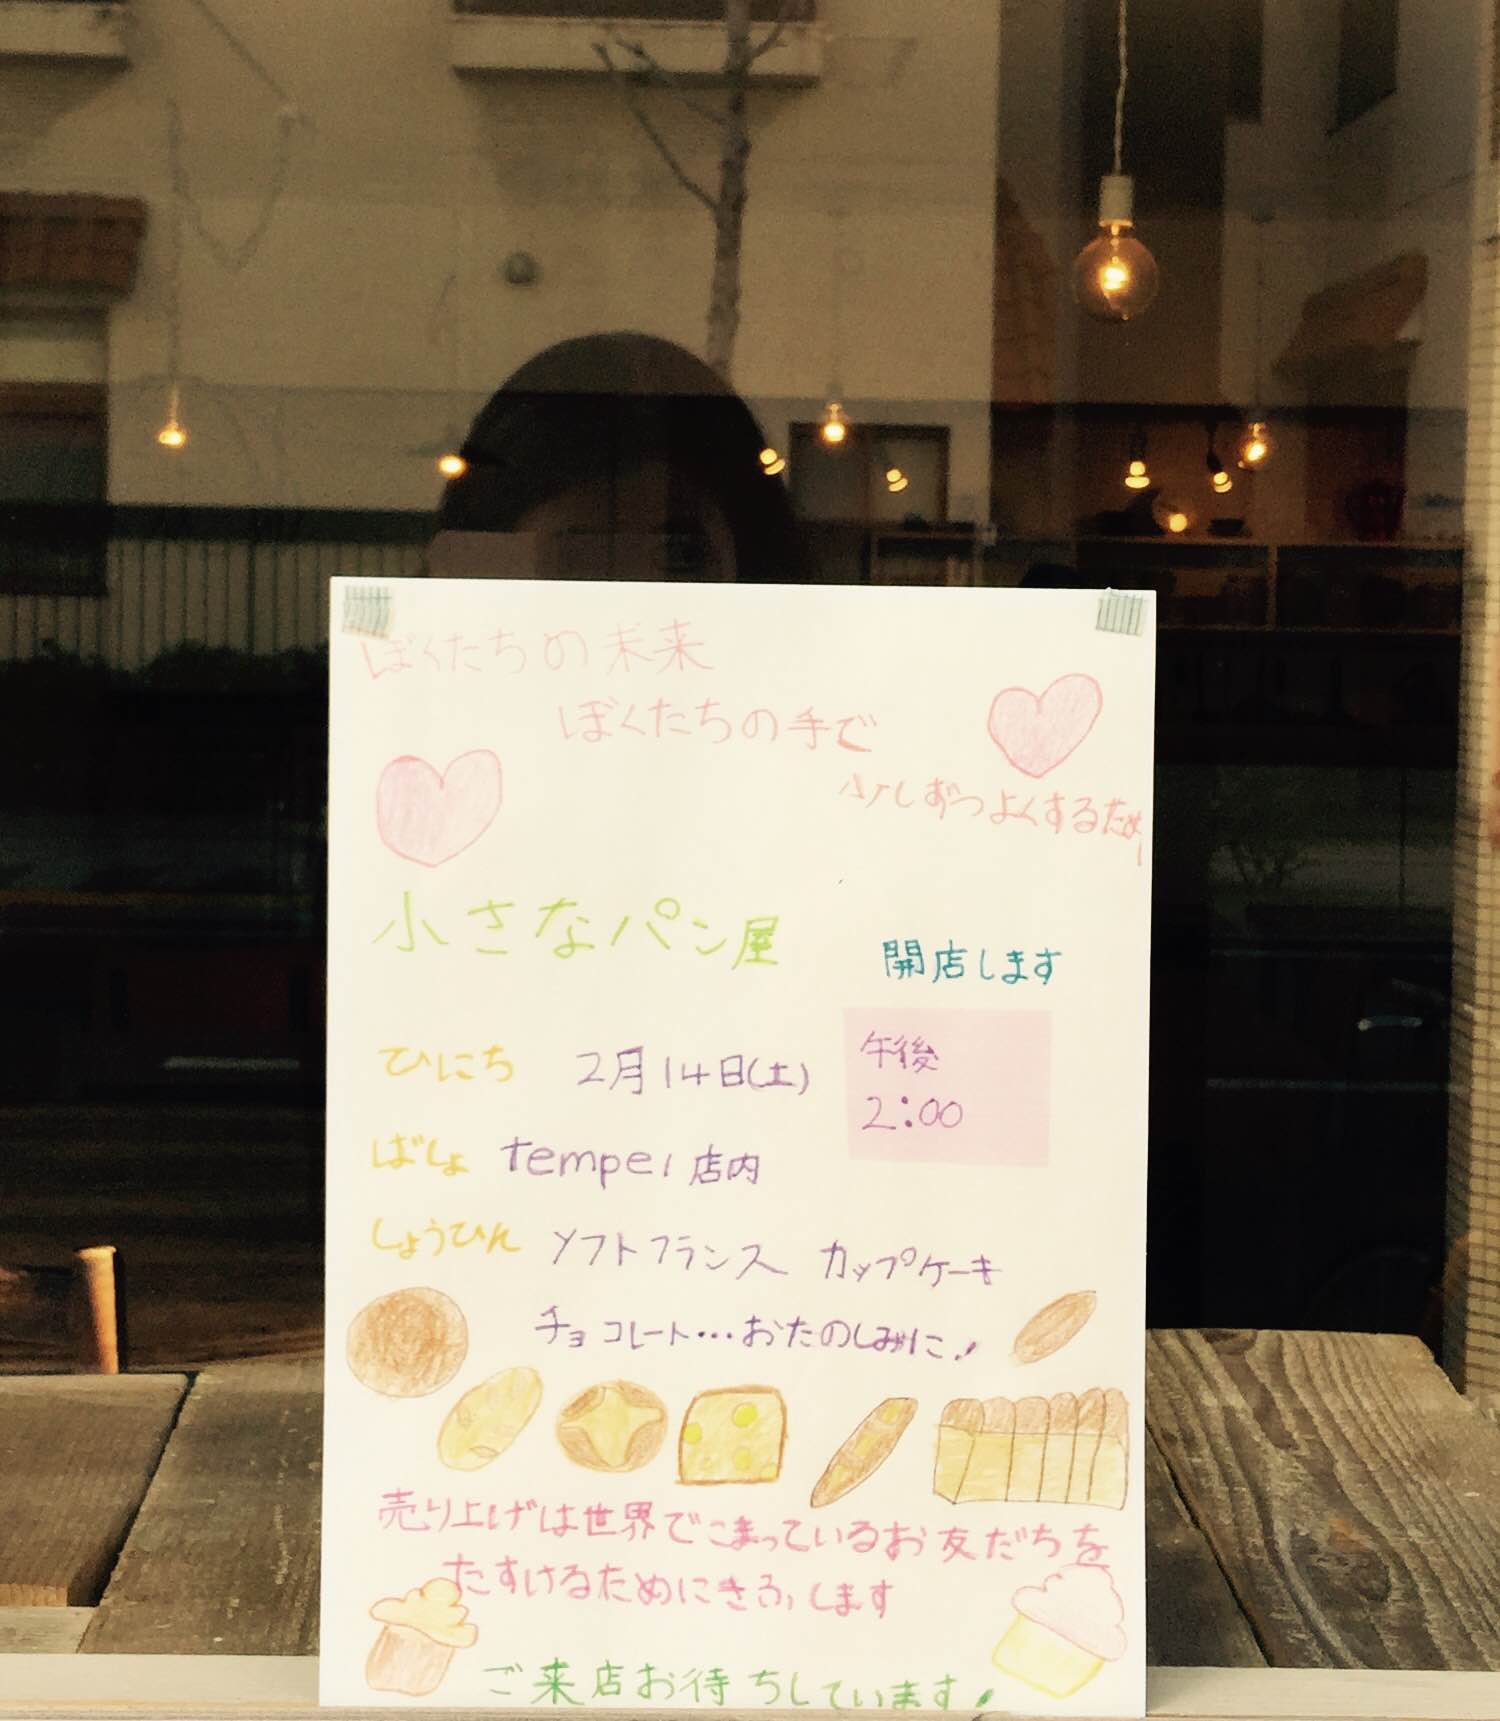 ぼくたちの未来
ぼくたちの手で
少しずつよくするため
小さなパン屋 開店します
ひにち 2月14日(土) 午後
2:00
ばしょ tempei 店内
しょうひん ソフトフランス カップケーキ
チョコレート…おたのしみに!
売り上げは世界でこまっているお友だちを
たすけるためにきふします
ご来店お待ちしています!